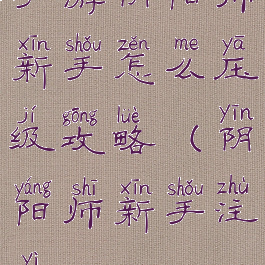 xīn shǒu zěn me yā
新手怎么压
jí gōng luè yīn
级攻略（阴
yáng shī xīn shǒu zhù
阳师新手注
yì